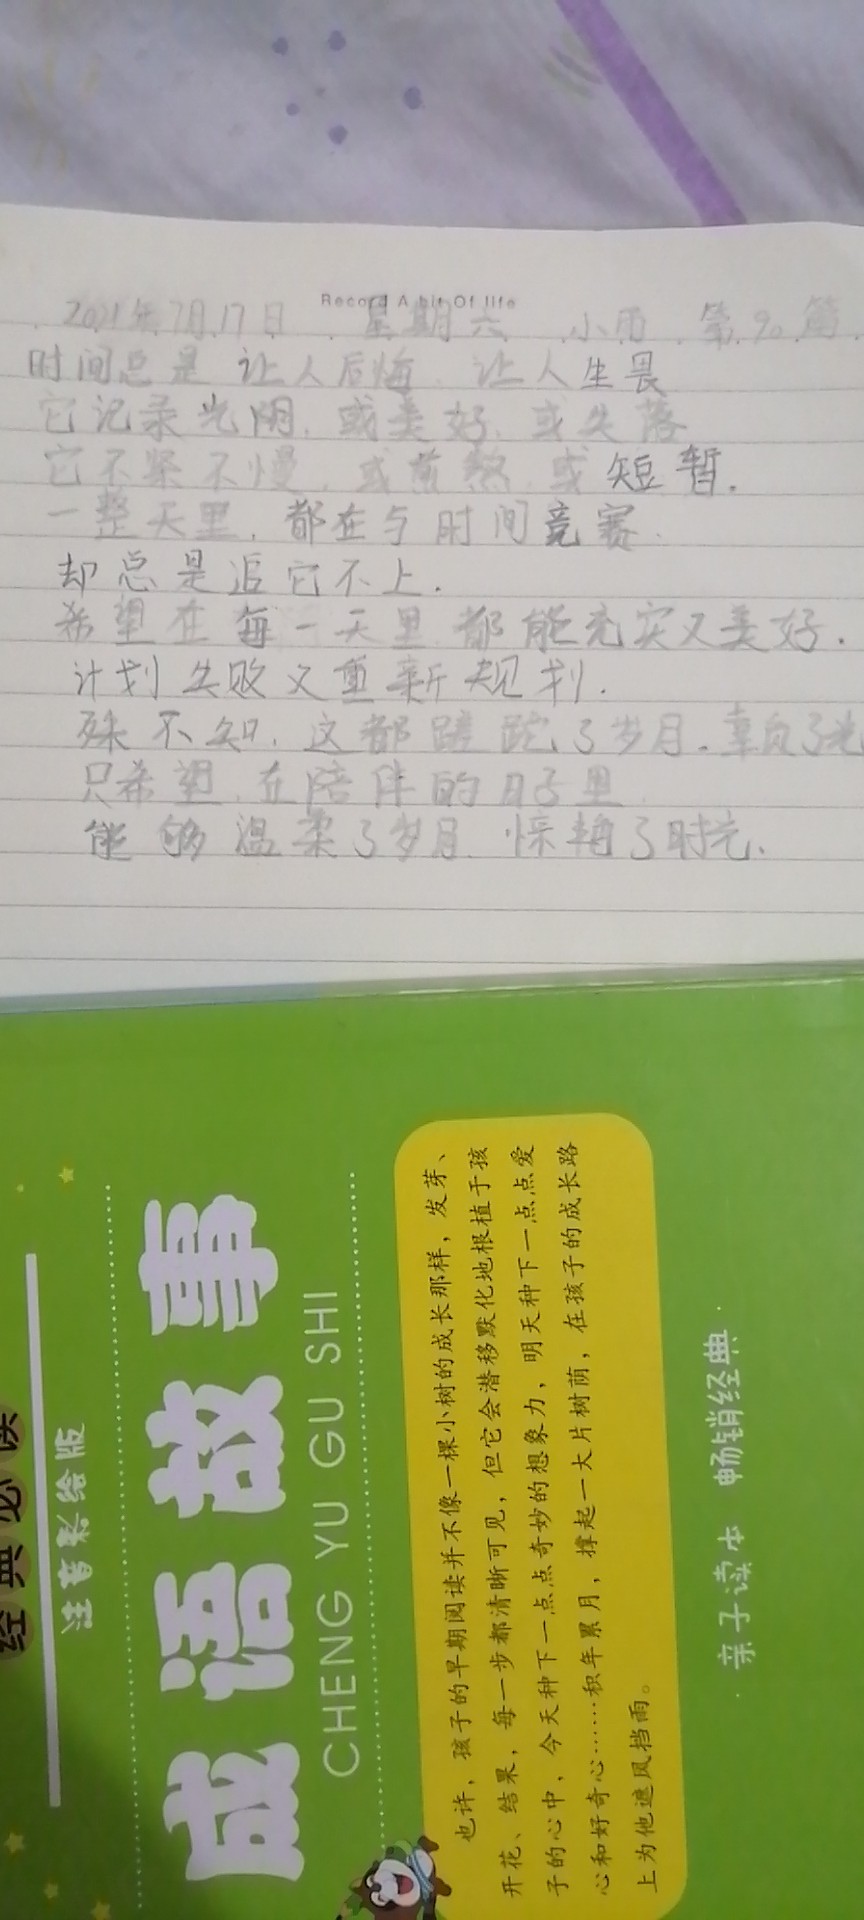 Record A bit Of life
2021年7月17日 星期六 小雨 第90篇
时间总是 让人后悔 让人生畏
它记录光阴,或美好,或失落
它不紧不慢,或煎熬,或短暂.
一整天里,都在与时间竞赛.
却总是追它不上.
希望在每一天里 都能充实又美好.
计划失败又重新规划.
殊不知,这都蹉跎了岁月.辜负了光
只希望,在陪伴的日子里
能够温柔了岁月 惊艳了时光.
经典必读
注音彩绘版
成语故事
CHENG YU GU SHI
也许,孩子的早期阅读并不像一棵小树的成长那样,发芽、
开花、结果,每一步都清晰可见,但它会潜移默化地根植于孩
子的心中,今天种下一点点奇妙的想象力,明天种下一点点爱
心和好奇心……积年累月,撑起一大片树荫,在孩子的成长路
上为他遮风挡雨。
·亲子读本 畅销经典·